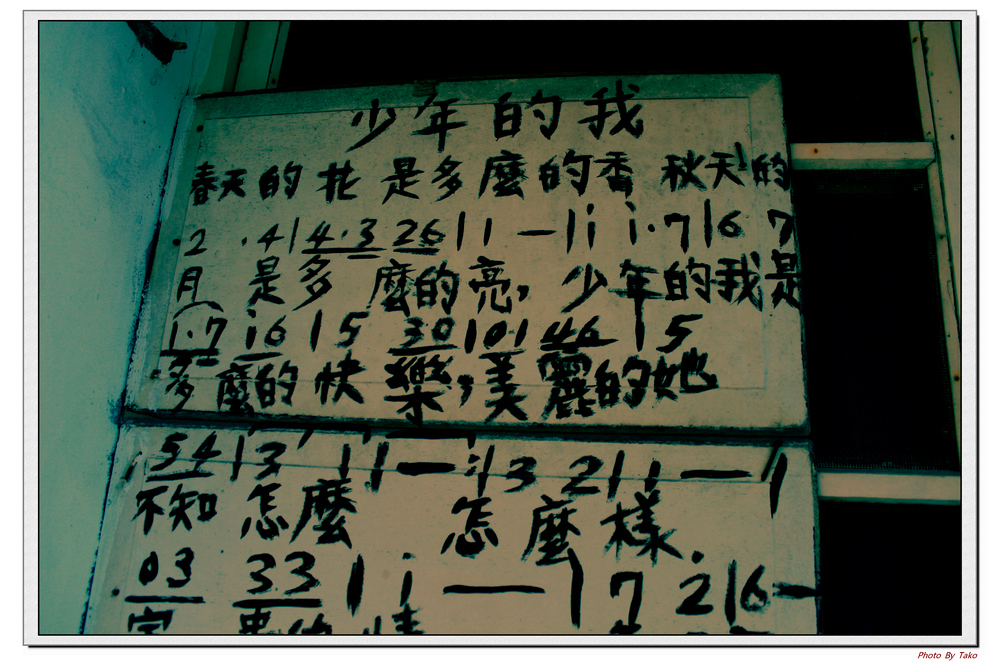 少年的我
春天的花 是多麼的香 秋天的
2 · 4 | 4·3 26 | 1 — | i i·7 | 6 7
月 是多 麼的亮, 少年的我是
1·7 i6 | 5 30 | 0·1 46 | 5
多麼的快樂,美麗的她
54 | 3 1 | 1 — | 3 2 | 1 — |
不知 怎麼 怎麼樣.
03 33 | i — | 7 2 | 6 —
Photo By Tako